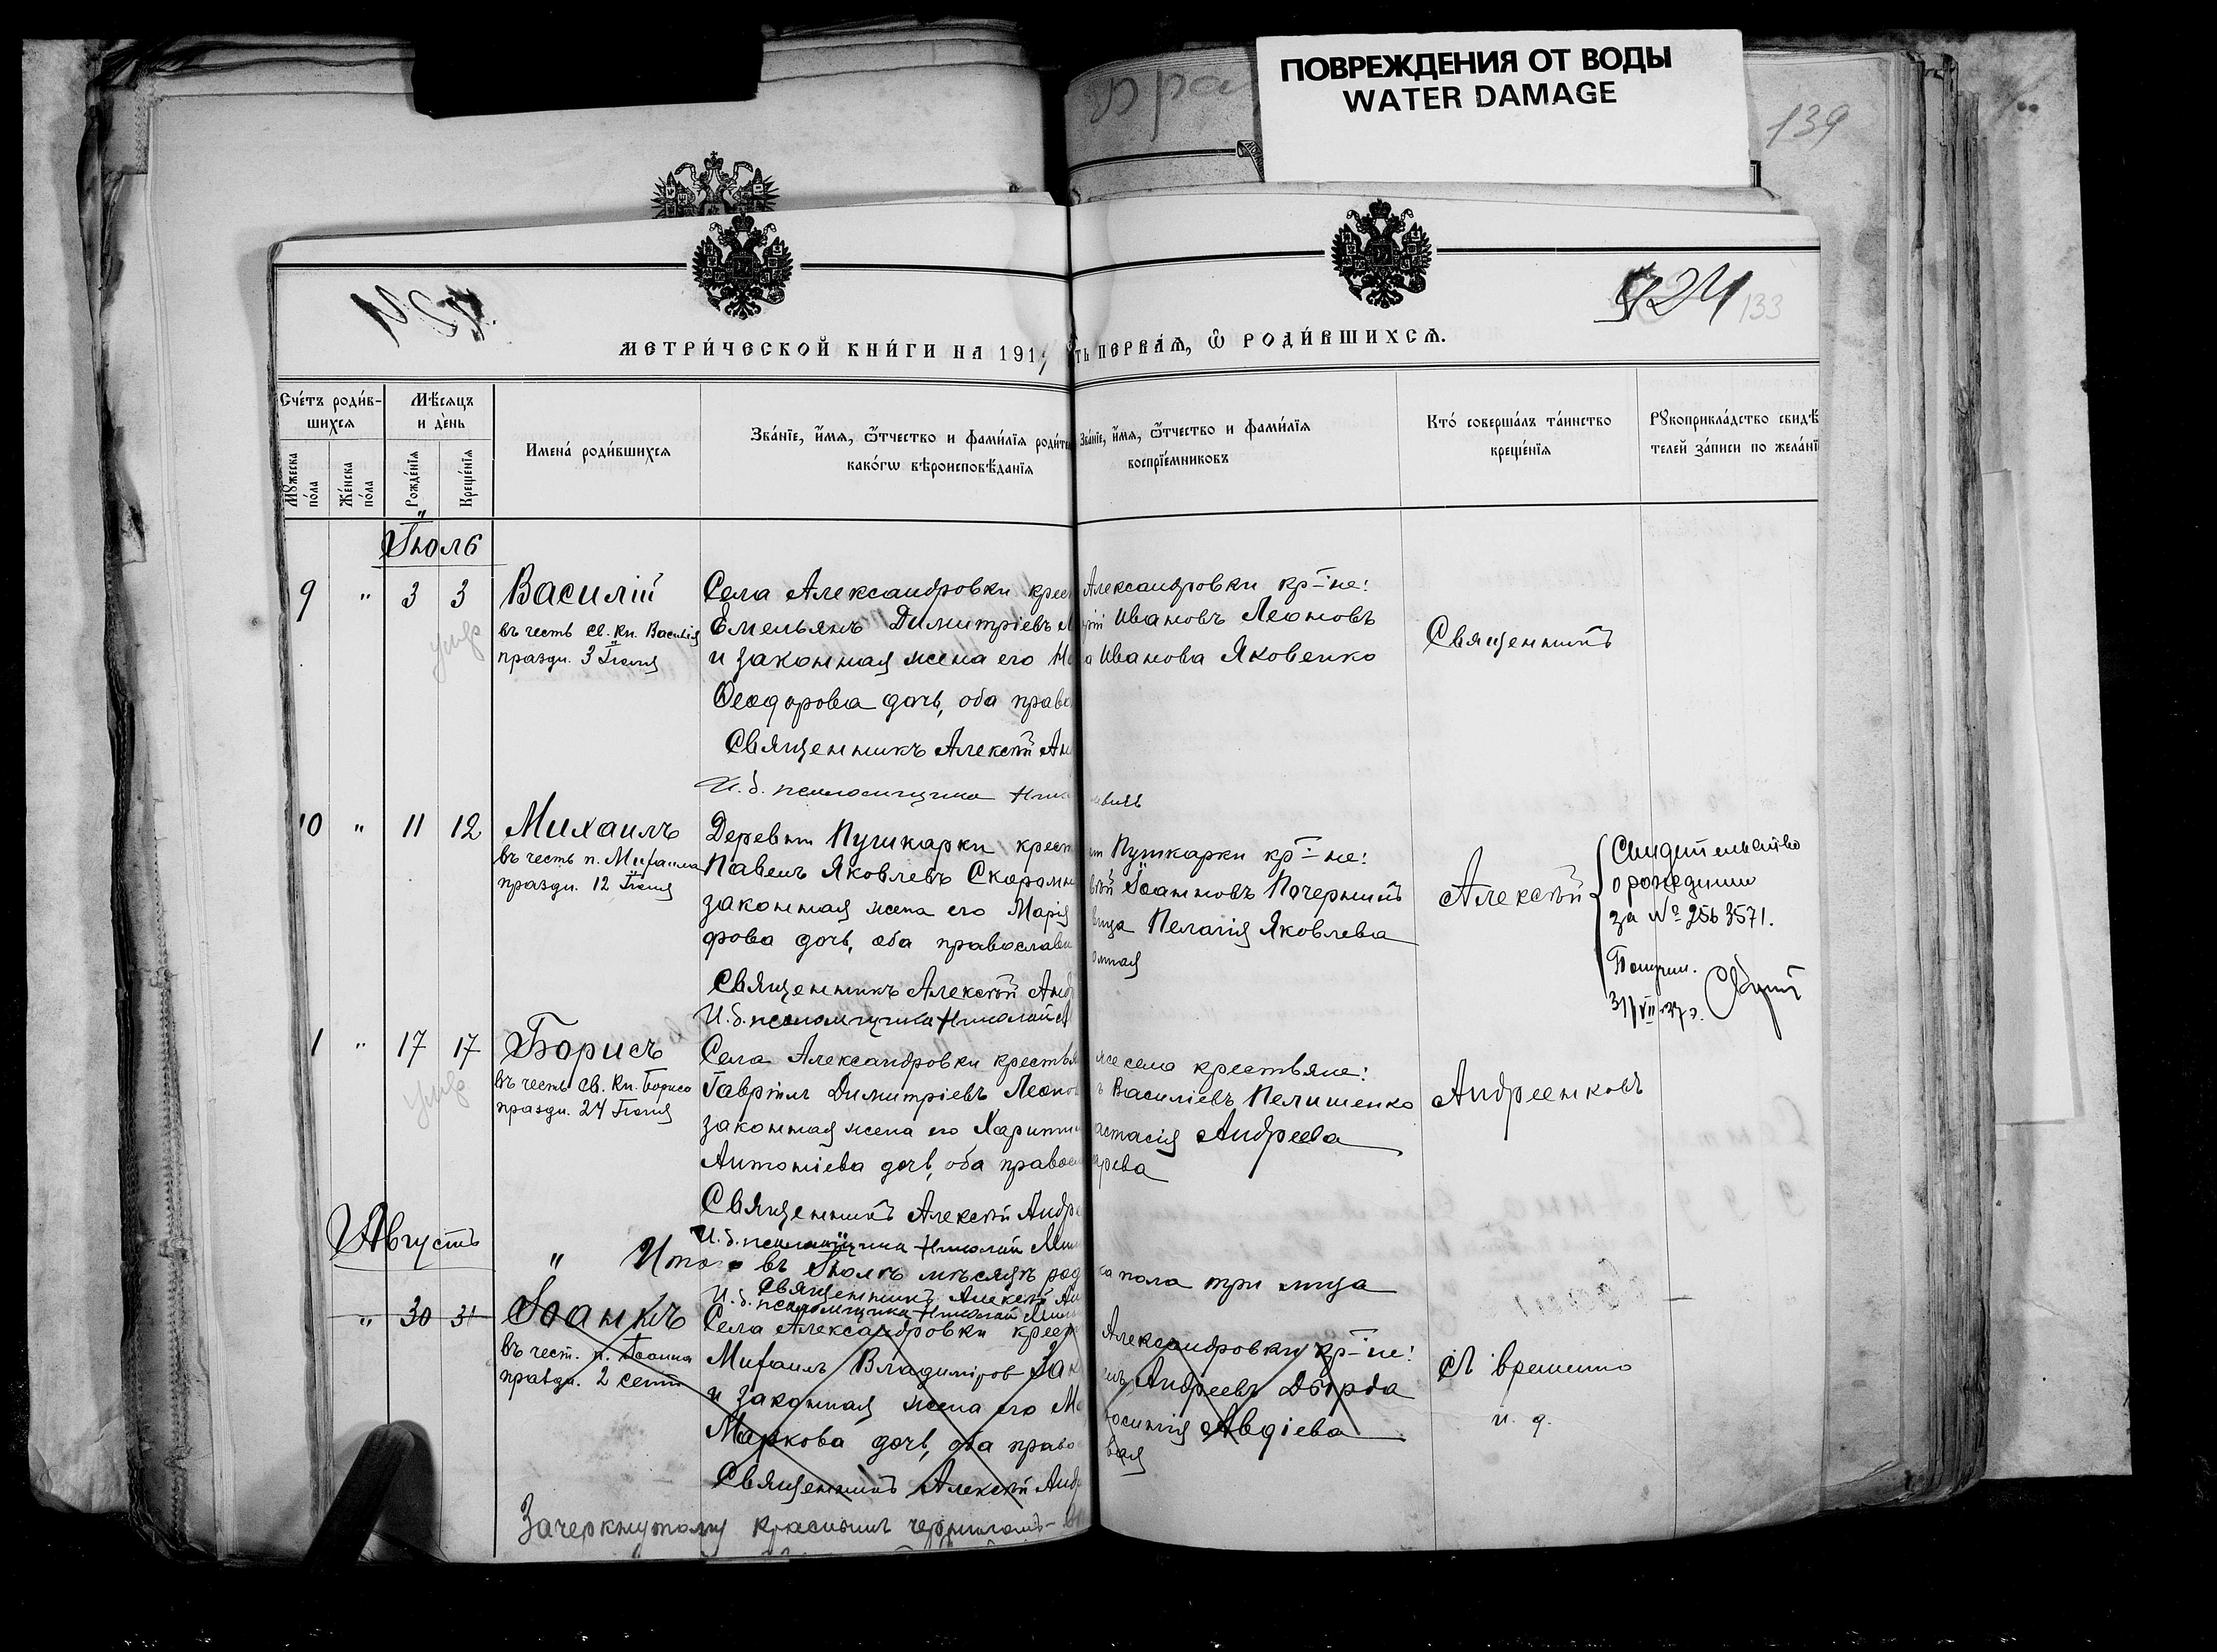 ПОВРЕЖДЕНИЯ ОТ ВОДЫ
WATER DAMAGE
139
924
133
МЕТРИ́ЧЕСКОЙ КНИ́ГИ НА 191
ТЬ ПЕРВАѦ, Ѽ РОДИ́ВШИХСѦ.
Сче́тъ роди́в-
шихсѧ
Мꙋ́жеска по́ла
Же́нска по́ла
Мѣ́сѧцъ
и де́нь
Рожде́нїѧ
Креще́нїѧ
Имена̀ роди́вшихсѧ
Зва́нїе, и҆́мѧ, ѻ҆́тчество и фами́лїѧ роди́те
како́гѡ вѣроисповѣ́данїѧ
Зва́нїе, и҆́мѧ, ѻ҆́тчество и фами́лїѧ
воспрїе́мниковъ
Кто̀ соверша́лъ та́инство
креще́нїѧ
Рꙋкоприкла́дство свидѣ́
телей за́писи по жела́нї
Іюль
9 " 3 3
Василій
въ честь св. кн. Василія
праздн. 3 Іюля
Села Александровки крес
Емельянъ Димитріевъ
и законная жена его
Ѳеодорова дочь, оба право
Священникъ Алексѣй Ан
И. д. псаломщика Ник
Александровки кр-не:
Ивановъ Леоновъ
Иванова Яковенко
Священникъ
10 " 11 12
Михаилъ
въ честь п. Михаила
праздн. 12 Іюля
Деревни Пушкарки крест
Павелъ Яковлевъ Скоромн
законная жена его Марія
фрова дочь, оба православн
Священникъ Алексѣй Анд
И. д. псаломщика Николай
Пушкарки кр-не:
Іоанновъ Почерний
вица Пелагія Яковлева
Алексѣй
Свидетельство
о рождении
за № 2563571.
Получил.
31/VII
1 " 17 17
Борисъ
въ честь св. кн. Бориса
праздн. 24 Іюля
Села Александровки крестья
Гавріилъ Димитріевъ Леонов
законная жена его Харитин
Антоніева дочь, оба правосл
Священникъ Алексѣй Андре
И. д. псаломщика Николай
же села крестьяне:
Василіевъ Пелишенко
астасія Андреева
арева
Андреенковъ
" Итого въ Іюлѣ мѣсяцѣ род
Священникъ Алексѣй Ан
И. д. псаломщика Николай
са пола три лица
Августъ
" 30 31
Іоаннъ
въ чест. п. Іоанна
праздн. 2 Сент
Села Александровки крест
Михаилъ Владиміров
и законная жена его М
Маркова дочь, оба право
Священникъ Алексѣй Андр
Александровки кр-не:
Андреевъ Дзюрда
Авдіева
вая
временно
и. д.
Зачеркнутому красными чернилами